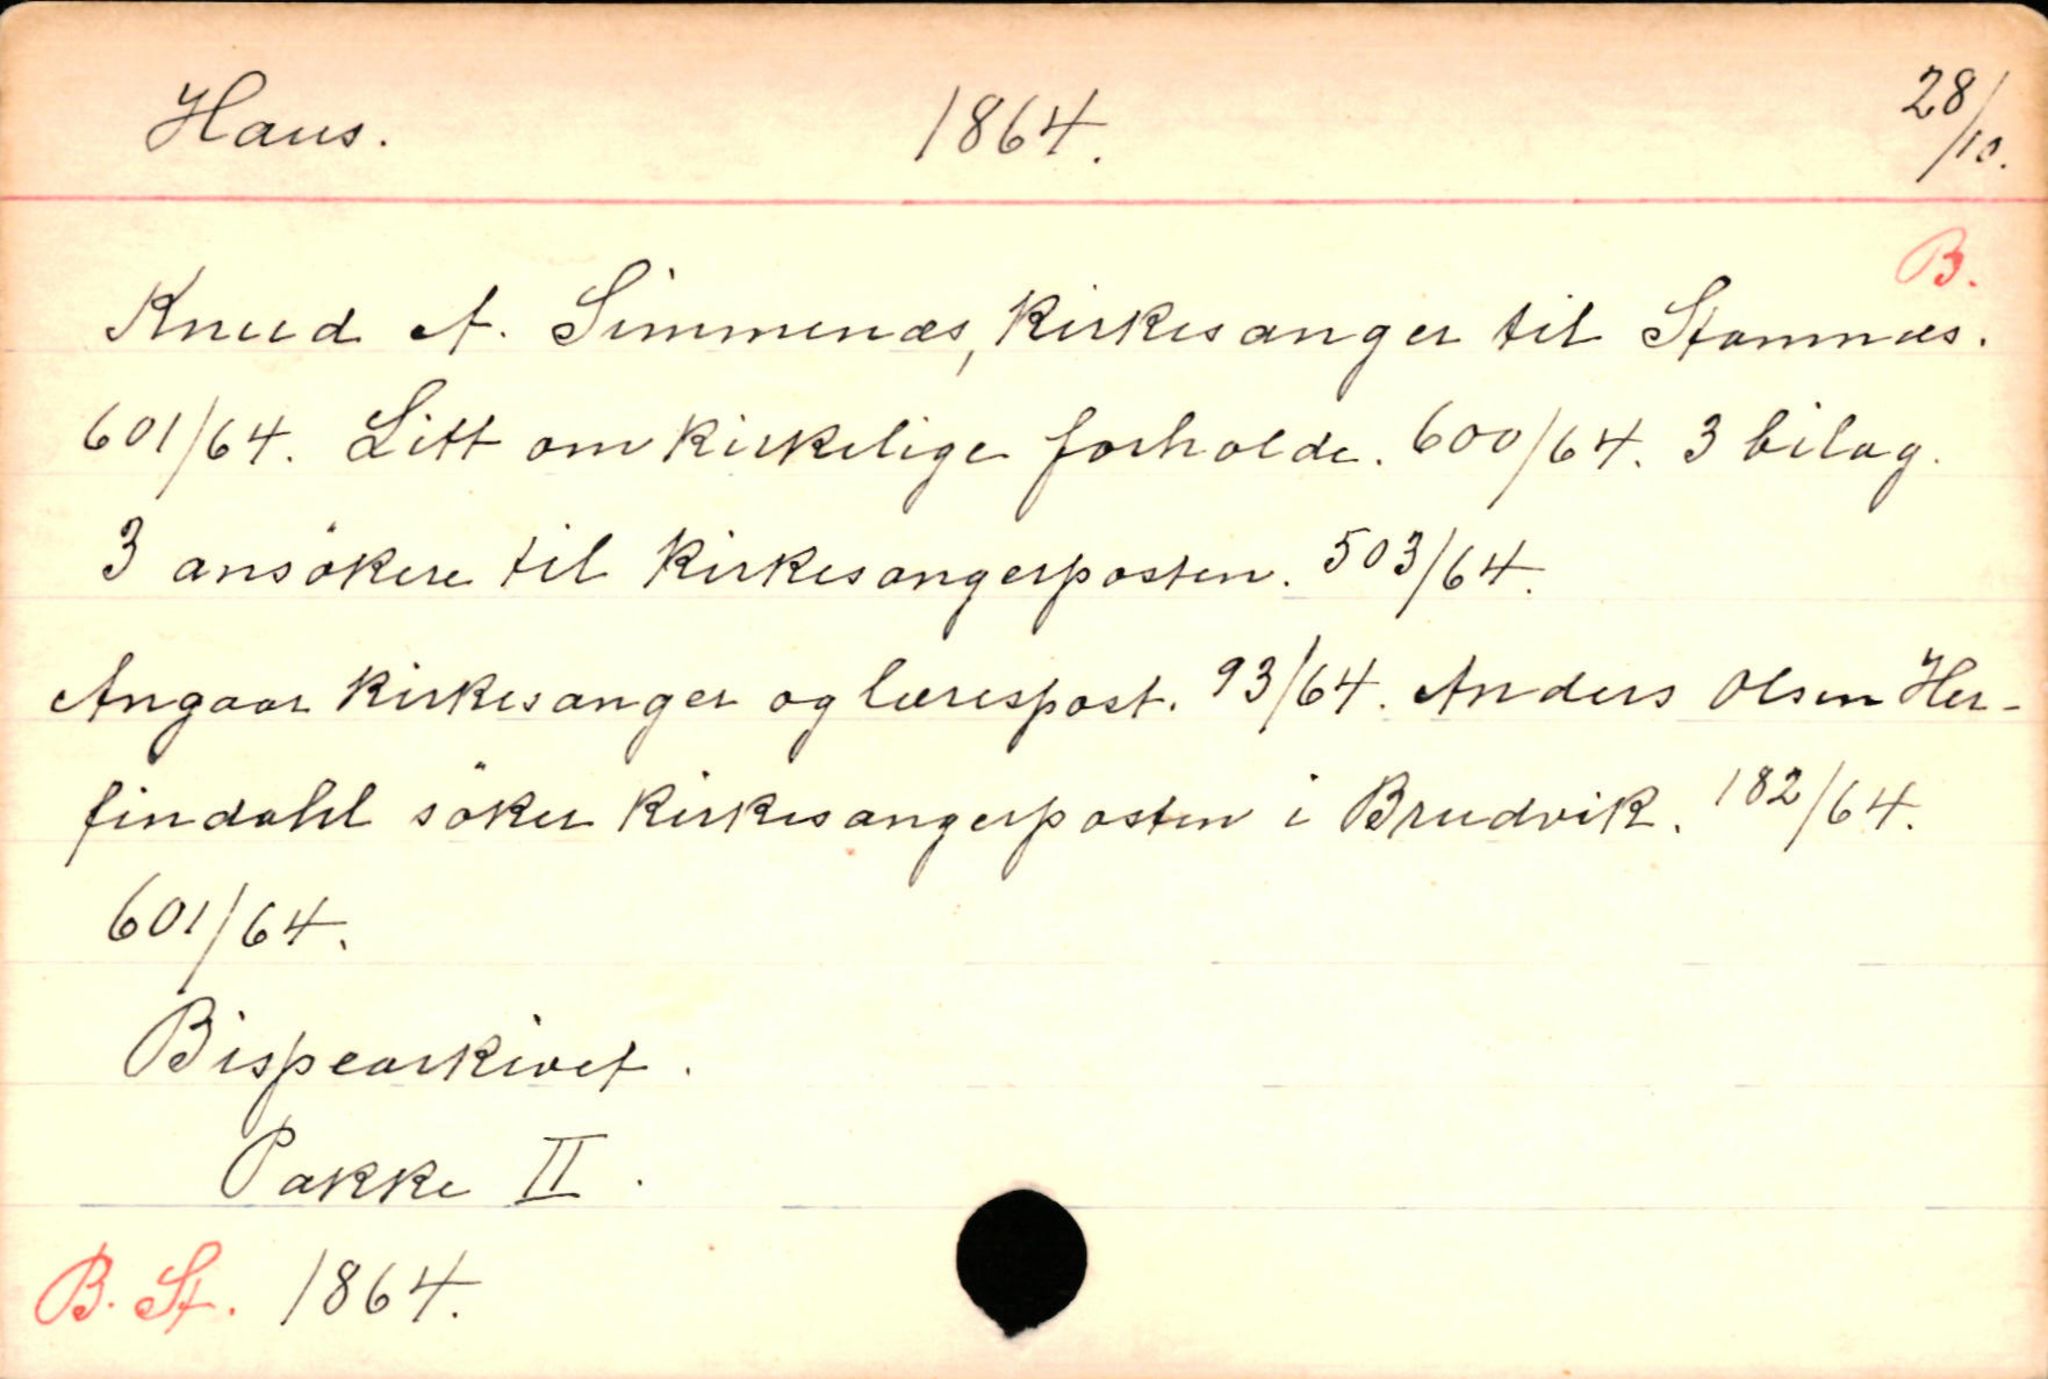 Haus. 1864. 28/10.
B.
Knud A. Simmenæs, kirkesanger til Stamnæs.
601/64. Litt om kirkelige forholde. 600/64. 3 bilag.
3 ansökere til kirkesangerposten. 503/64.
Angaar kirkesanger og lærespost. 93/64. Anders Olsen Her-
findahl söker kirkesangerposten i Brudvik. 182/64.
601/64.
Bispearkivet.
Pakke II.
B. St. 1864.